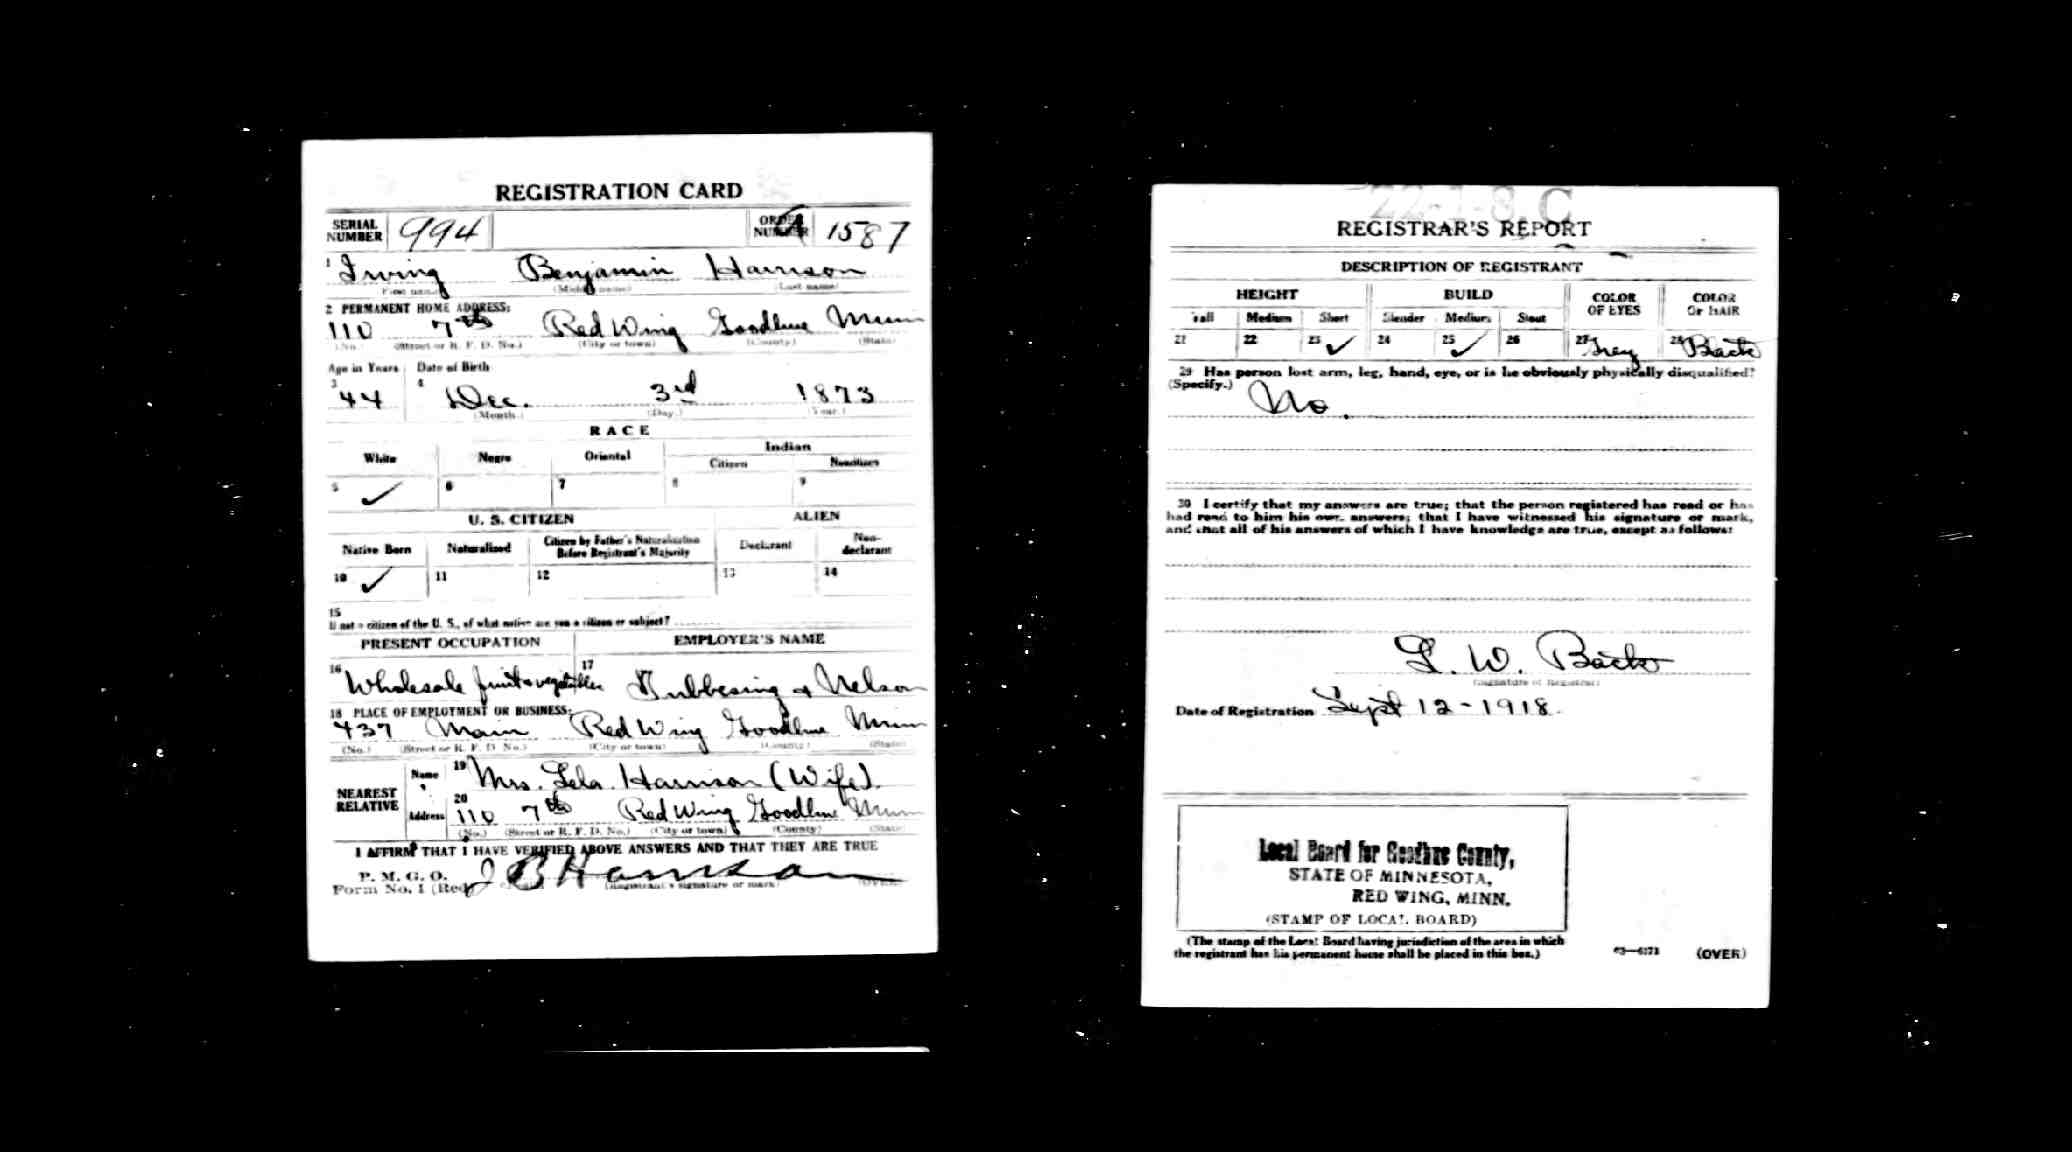 REGISTRATION CARD
SERIAL NUMBER 994 ORDER NUMBER A 1587
1 Irving Benjamin Harrison
(First name) (Middle name) (Last name)
2 PERMANENT HOME ADDRESS:
110 7th Red Wing Goodhue Minn
(No.) (Street or R. F. D. No.) (City or town) (County) (State)
Age in Years Date of Birth
3 44 4 Dec. 3rd 1873
(Month.) (Day.) (Year.)
RACE
White Negro Oriental Indian
Citizen Noncitizen
5 ✓ 6 7 8 9
U. S. CITIZEN ALIEN
Native Born Naturalized Citizen by Father's Naturalization Before Registrant's Majority Declarant Non-declarant
10 ✓ 11 12 13 14
15
If not a citizen of the U. S., of what nation are you a citizen or subject?
PRESENT OCCUPATION EMPLOYER'S NAME
16 Wholesale fruit & vegetables 17 & Nelson
18 PLACE OF EMPLOYMENT OR BUSINESS:
437 Main Red Wing Goodhue Minn
(No.) (Street or R. F. D. No.) (City or town) (County) (State)
NEAREST RELATIVE Name 19 Mrs. Lela Harrison (Wife).
Address 20 110 7th Red Wing Goodhue Minn
(No.) (Street or R. F. D. No.) (City or town) (County) (State)
I AFFIRM THAT I HAVE VERIFIED ABOVE ANSWERS AND THAT THEY ARE TRUE
P. M. G. O.
Form No. 1 (Red) I B Harrison
(Registrant's signature or mark) (OVER)
22-1-8. C
REGISTRAR'S REPORT
DESCRIPTION OF REGISTRANT
HEIGHT BUILD COLOR OF EYES COLOR OF HAIR
Tall Medium Short Slender Medium Stout
21 22 23 ✓ 24 25 ✓ 26 27 Grey 28 Black
29 Has person lost arm, leg, hand, eye, or is he obviously physically disqualified?
(Specify.) No.
30 I certify that my answers are true; that the person registered has read or has
had read to him his own answers; that I have witnessed his signature or mark,
and that all of his answers of which I have knowledge are true, except as follows:
L. W.
(Signature of Registrar)
Date of Registration Sept 12-1918.
Local Board for Goodhue County,
STATE OF MINNESOTA,
RED WING, MINN.
(STAMP OF LOCAL BOARD)
(The stamp of the Local Board having jurisdiction of the area in which
the registrant has his permanent home shall be placed in this box.)
03—6171 (OVER)